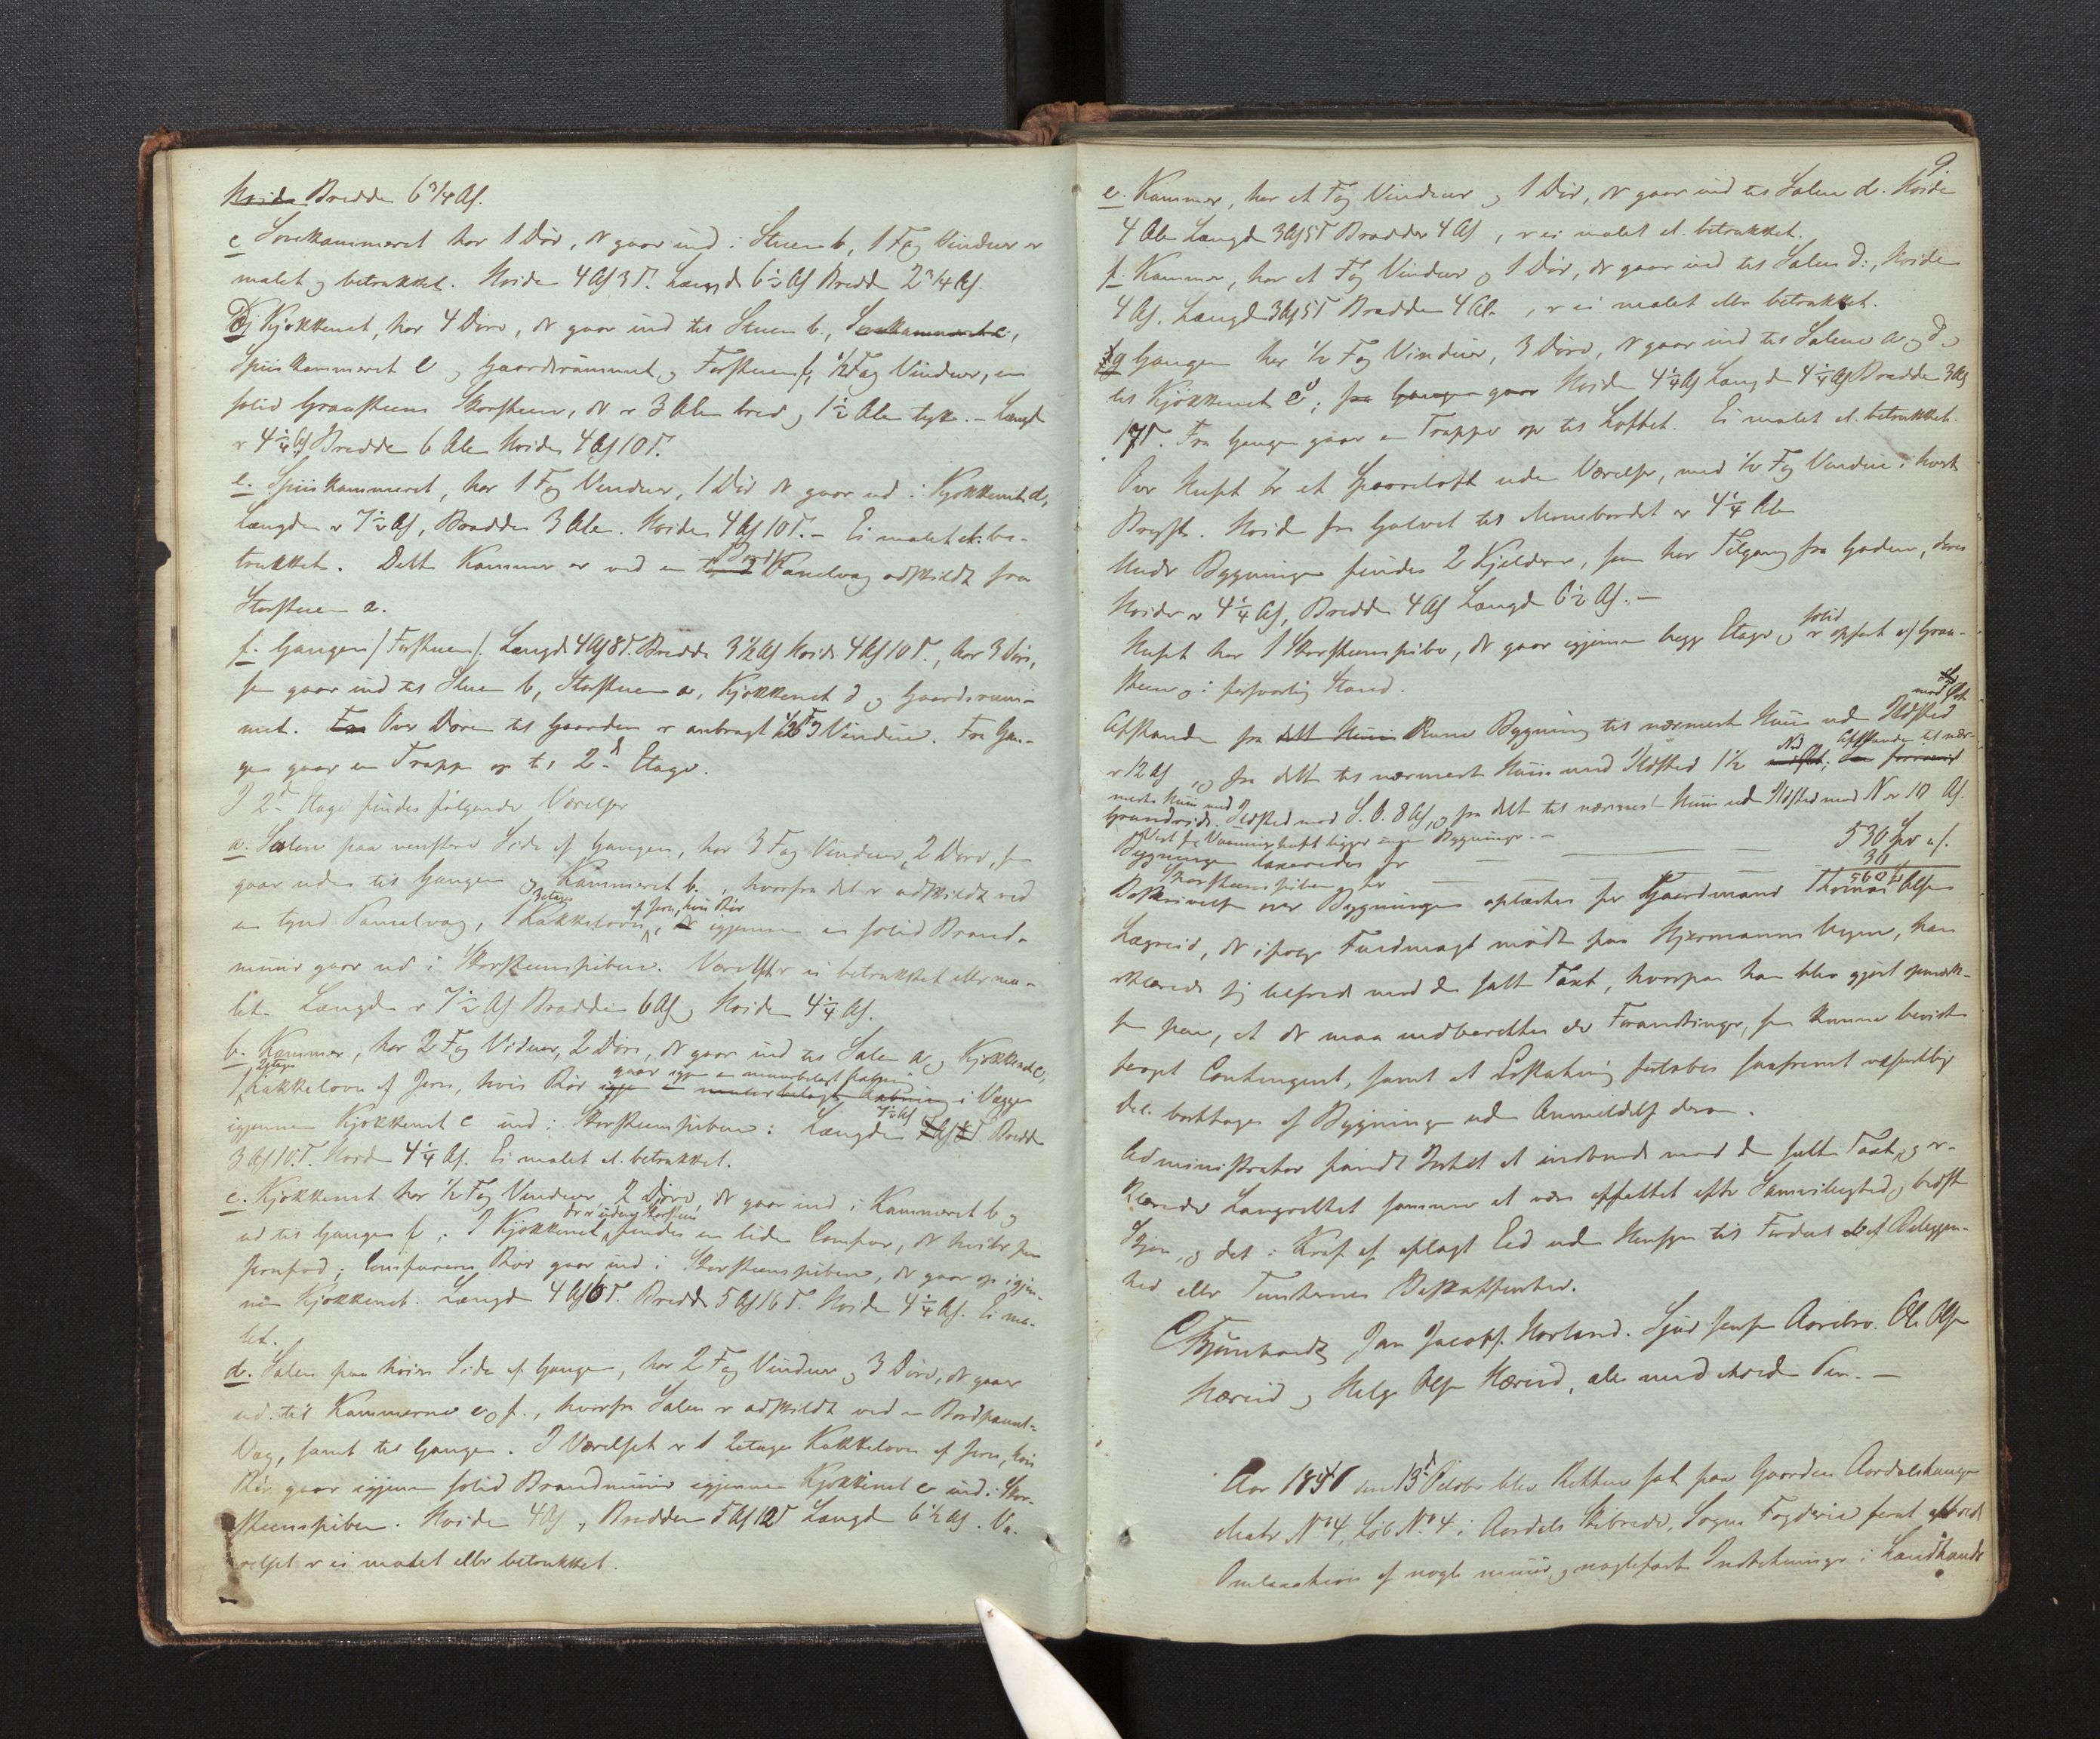 Bredde 6 3/4 Al.
c Sovekammeret har 1 Dør, der gaar ind i Stuen b, 1 Fag Vinduer er
malet og betrukket. Høide 4 Al 3 T. Længde 6 1/2 Al Bredde 2 3/4 Al.
d Kjøkkenet, har 4 Døre, der gaar ind til Stuen b., Sovekammeret c,
Spiiskammeret e og Gaardsrummet, og Forstuen f, 1/2 Fag Vinduer, en
solid Graasteens Skorsteen, der er 3 Alen bred og 1 1/2 Alen tyk. - Længde
er 4 1/4 Al Bredde 6 Alen Høide 4 Al 10 T.
e. Spiiskammeret, har 1 Fag Vinduer, 1 Dør der gaar ud i Kjøkkenet d,
Længden er 7 1/2 Al, Bredde 3 Alen. Høiden 4 Al 10 T. - Ei malet el. be-
trukket. Dette Kammer er ved en Bord Panelvæg adskildt fra
Storstuen a.
f. Gangen /: Forstuen :/ Længde 4 Al 8 T. Bredde 3 1/2 Al Høide 4 Al 10 T., har 3 Døre,
som gaar ind til Stuen b, Storstuen a, Kjøkkenet d og Gaardsrum-
met. Over Døren til Gaarden er anbragt 1/2 Fag Vindue. Fra Gan-
gen gaar en Trappe op til 2den Etage.
I 2den Etage findes følgende Værelser
a. Salen paa venstre Side af Gangen, har 3 Fag Vinduer, 2 Døre, som
gaar uden til Gangen og Kammeret b., hvorfra det er adskildt ved
en tynd Panelvæg, 1 2 Etages Kakkelovn af Jern, hvis Rør igjennem en solid Brand-
muur gaar ud i Skorsteenspiben. Værelset er ei betrukket eller ma-
let. Længde er 7 1/2 Al Bredde 6 Al og Høide 4 1/4 Al.
b. Kammer, har 2 Fag Viduer, 2 Døre, der gaar ind til Salen a og Kjøkkenet c,
1 2 Etages Kakkelovn af Jern, hvis Rør gaar igjen en muurbelagt Aabning i Væggen
igjennem Kjøkkenet c ind i Skorsteenspiben: Længden 7 1/2 Al Bredde
3 Al 10 T. Høide 4 1/4 Al. Ei malet el. betrukket.
c. Kjøkkenet har 1/2 Fag Vinduer, 2 Døre, der gaar ind i Kammeret b og
ud til Gangen f. I Kjøkkenet, der er uden Skorsteen findes en liden Comfur, der hviler paa
Jernfod; Comfurens Rør gaar ind i Skorsteenspiben, der gaar op igjen-
nem Kjøkkenet. Længde 4 Al 6 T. Bredde 5 Al 16 T. Høide 4 1/4 Al. Ei ma-
let.
d. Salen paa høire Side af Gangen, har 2 Fag Vinduer og 3 Døre, der gaar
ud til Kammerne e og f., hvorfra Salen er adskildt ved en Bordpanel-
Væg, samt til Gangen. I Værelset er 1 2 Etages Kakkelovn af Jern, hvis
Rør gaar igjennem solid Brandmuur igjennem Kjøkkenet c ind i Skor-
steenspiben. Høiden 4 Al, Bredden 5 Al 12 T Længde 6 1/2 Al. Væ-
relset er ei malet eller betrukket.
9.
e. Kammer, har et Fag Vinduer og 1 Dør, der gaar ind til Salen d. Høide
4 Alen Længde 3 Al 5 T Bredden 4 Al, er ei malet el. betrukket.
f. Kammer, har et Fag Vinduer og 1 Dør, der gaar ind til Salen d., Høide
4 Al. Længde 3 Al 5 T Bredden 4 Al., er ei malet eller betrukket.
g Gangen har 1/2 Fag Vinduer, 3 Døre, der gaar ind til Salene a og d og
til Kjøkkenet c; fra Gangen gaar Høide 4 1/4 Al Længde 4 1/4 Al Bredde 3 Al
17 T. Fra Gangen gaar en Trappe op til Loftet. Ei malet el. betrukket.
Over Huset er et Sparreloft uden Værelser, med 1/2 Fag Vindue i hvert
Bryst. Høide fra Gulvet til Mønebordet er 4 1/4 Alen
Under Bygningen findes 2 Kjeldere, som har Tilgang fra Gaden, deres
Høide er 4 1/4 Al, Bredde 4 Al Længde 6 1/2 Al. -
Huset har 1 Skorsteenspibe, der gaar igjennem begge Etager og er solid opført af Graa-
steen og i forsvarlig Stand.
Afstanden fra dette Huus denne Bygning til nærmeste Huus uden Ildsted mod Øst
er 12 Al, og fra dette til nærmeste Huus med Ildsted 1 1/2 Afstanden til nær-
meste Huus med Ildsted mod S. V. 8 Al, og fra dette til nærmeste Huus uden Ildsted mod N er 10 Al.
Bygningen taxeredes for — — — 530 Spd
Skorsteenspiben for — — — 30
560
Beskrivelsen over Bygningen oplæstes for Gaardmand Thomas Olsen
Lægreid, der ifølge Fuldmagt mødte paa Hjermanns Vegne, han
erklærede sig tilfreds med den satte Taxt, hvorpaa han blev gjort opmærk-
som paa, at der maa indberettes de Forandringer, som kunne bevirke
forøget Contingent, samt at Erstatning fortabes saafremt væsentlig
Dele borttages af Bygningen uden Anmeldelse derom.
Administrator fandt Intet at indvende mod den satte Taxt, og er-
klærede Laugrettet samme at være affattet efter Samvittighed og bedste
Skjøn, og det i Kraft af aflagt Eed uden Hensyn til Stedets Beliggen-
hed eller Tomternes Beskaffenhed.
Jan Jacobs. Horland. Sjur Jensen Aarebro. Ole Olsen
Hæreid og Helge Olsen Hæreid, alle med ihold. Pen. -
Aar 1851 den 13de October blev Retten sat paa Gaarden Aardalstangen
Matr. No 4, Løb No 4 i Aardals Skibrede, Sogns Fogderie
Omtaxation af nogle muur og naglefaste Indretninger i Landhandler